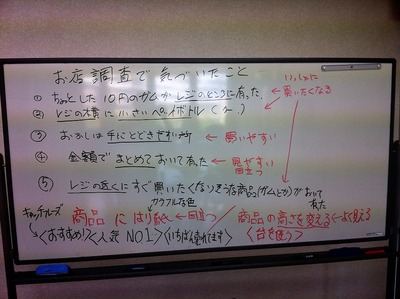 お店調査で気づいたこと
① ちょっとした10円のガムがレジのところに有った。
いっしょに
買いたくなる
② レジの横に小さいペットボトル
③ おかしは手にとどきやすい所 ← 買いやすい
④ 金額でまとめておいて有った ← 見やすい
目立つ
⑤ レジの近くにすぐ買いたくなりそうな商品(ガムとか)がおいて
有た
カラフルな色
キャッチフレーズ
商品にはり紙 ← 目立つ
商品の高さを変える ← よく見える
<おすすめ!><人気NO1><いちばん売れてます>
<台を使う>